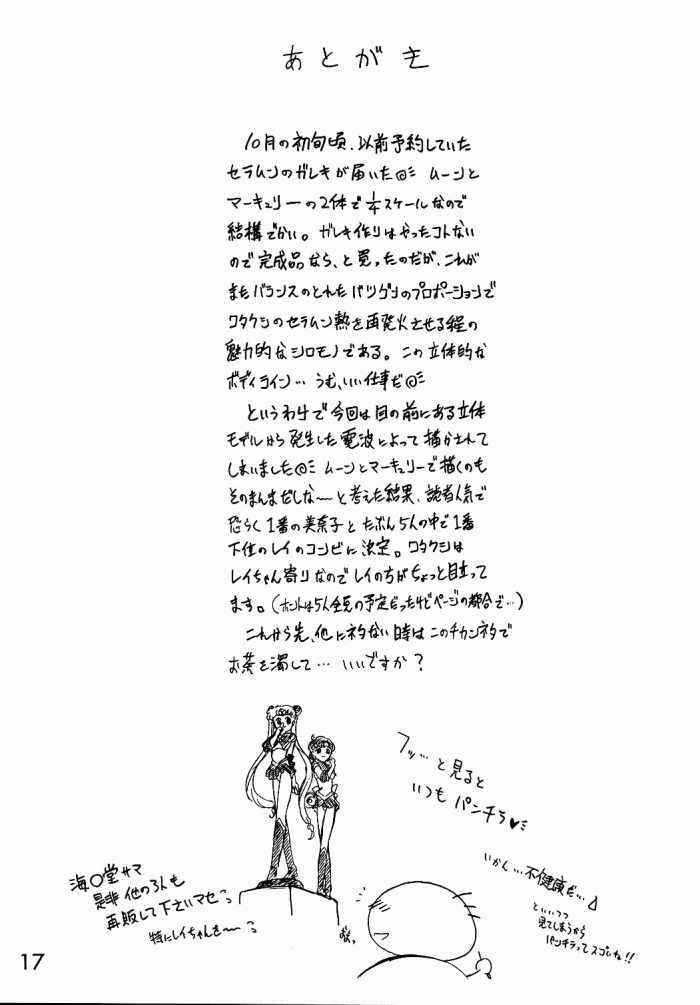 あとがき
10月の初旬頃、以前予約していた
セラムンのガレキが届いた@ミ ムーンと
マーキュリーの2体で1/4スケールなので
結構でかい。ガレキ作りはやったコトない
ので完成品なら、と買ったのだが、これが
またバランスのとれたバツグンのプロポーションで
ワタクシのセラムン熱を再発火させる程の
魅力的なシロモノである。この立体的な
ボディライン… うむ、いい仕事だ@ミ
というわけで今回は目の前にある立体
モデルから発生した電波によって描かされて
しまいました@ミ ムーンとマーキュリーで描くのも
そのまんまだしな〜と考えた結果、読者人気で
恐らく1番の美奈子とたぶん5人の中で1番
下位のレイのコンビに決定。ワタクシは
レイちゃん寄りなのでレイの方がちょっと目立って
ます。(ホントは5人全員の予定だったけどページの都合で…)
これから先、他にネタない時はこのチカンネタで
お茶を濁して… いいですか?
フッ…と見ると
いつもパンチラ♥ミ
いかん…不健康だ…
といいつつ
見てしまうから
パンチラってスゴいね!!
海○堂サマ
是非他の3人も
再販して下さいマセ
特にレイちゃんを〜
17